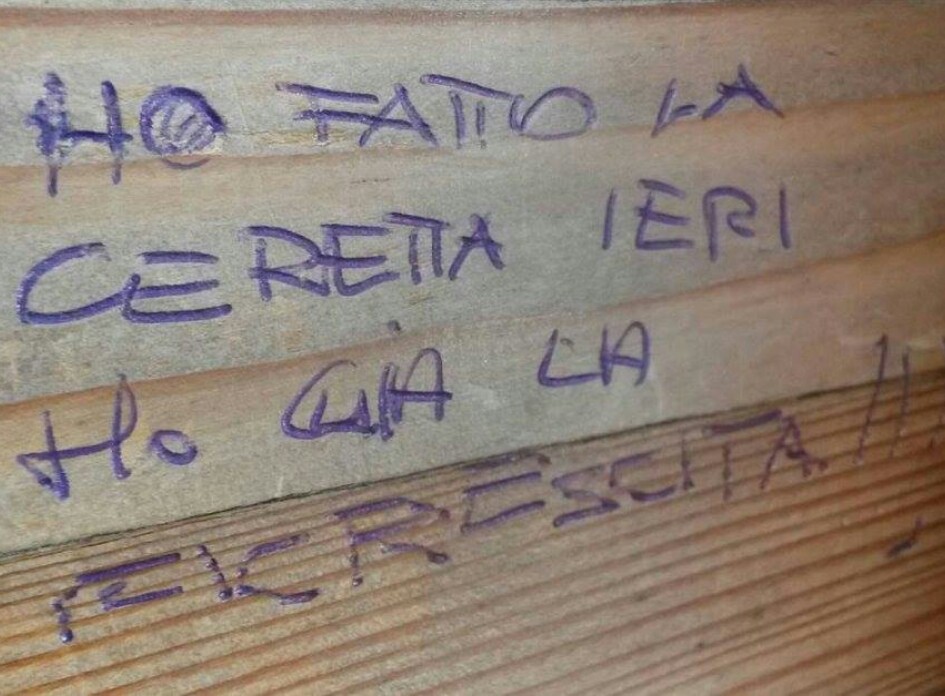 HO FATTO LA
CERETTA IERI
Ho GIA LA
RICRESCITA!!